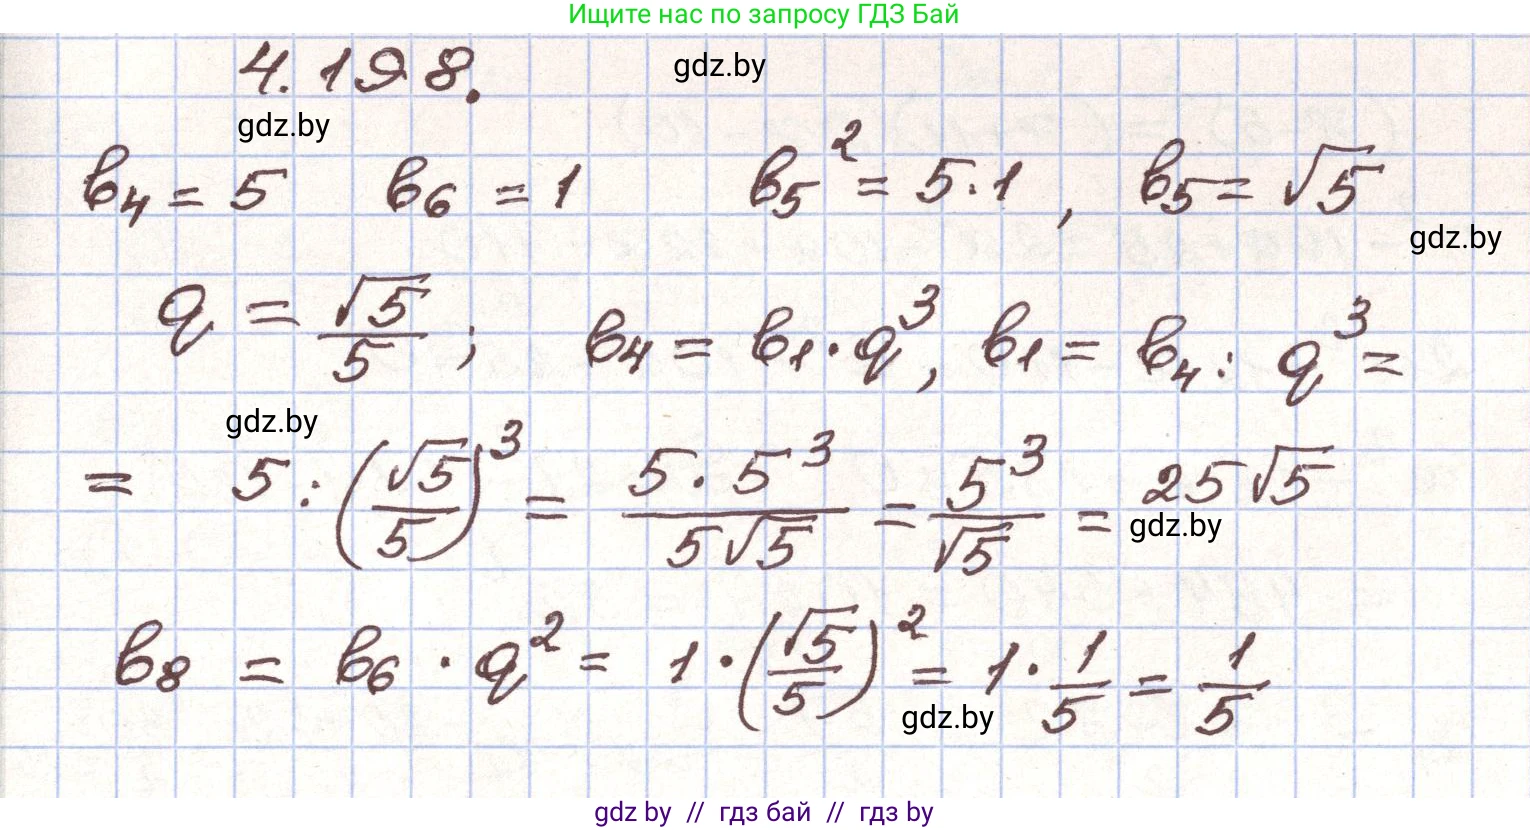 Ищите нас по запросу ГДЗ Бай
4.198.
gdz.by
gdz.by
в₄ = 5 в₆ = 1 в₅² = 5·1, в₅ = √5
gdz.by
q = √5/5; в₄ = в₁·q³, в₁ = в₄ : q³ =
gdz.by
= 5 : (√5/5)³ = 5·5³/5√5 = 5³/√5 = 25√5
gdz.by
в₈ = в₆ · q² = 1·(√5/5)² = 1·1/5 = 1/5
gdz.by
gdz by // гдз бай // гдз by